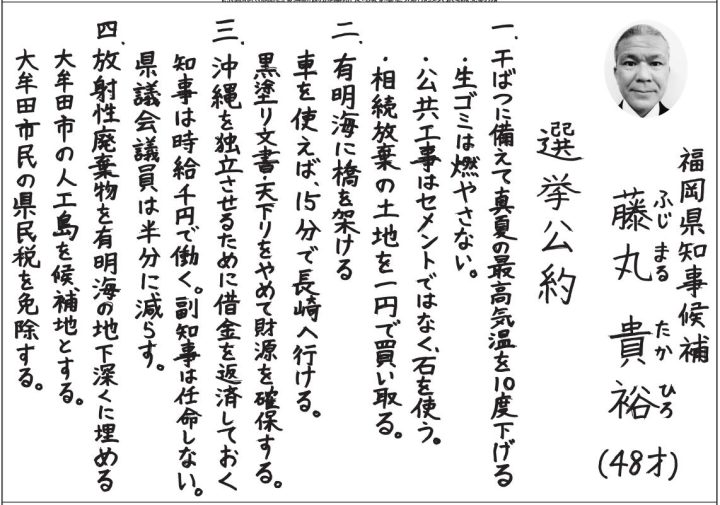 福岡県知事候補
藤丸 貴裕 (48才)
ふじ まる たか ひろ
選挙公約
一、干ばつに備えて真夏の最高気温を10度下げる
・生ゴミは燃やさない。
・公共工事はセメントではなく、石を使う。
・相続放棄の土地を一円で買い取る。
二、有明海に橋を架ける
車を使えば、15分で長崎へ行ける。
黒塗り文書・天下りをやめて財源を確保する。
三、沖縄を独立させるために借金を返済しておく
知事は時給千円で働く。副知事は任命しない。
県議会議員は半分に減らす。
四、放射性廃棄物を有明海の地下深くに埋める
大牟田市の人工島を候補地とする。
大牟田市民の県民税を免除する。